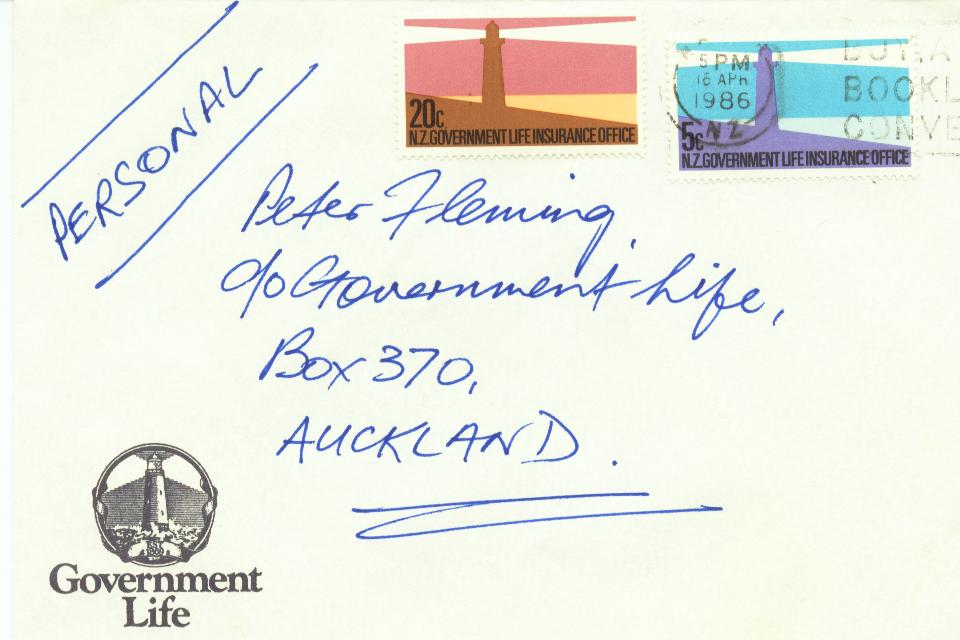 PERSONAL
20c
N.Z. GOVERNMENT LIFE INSURANCE OFFICE
5 PM
16 APR
1986
NZ
5c
N.Z. GOVERNMENT LIFE INSURANCE OFFICE
BOOKL
CONVE
Peter Fleming,
c/o Government Life,
Box 370,
AUCKLAND.
Government
Life